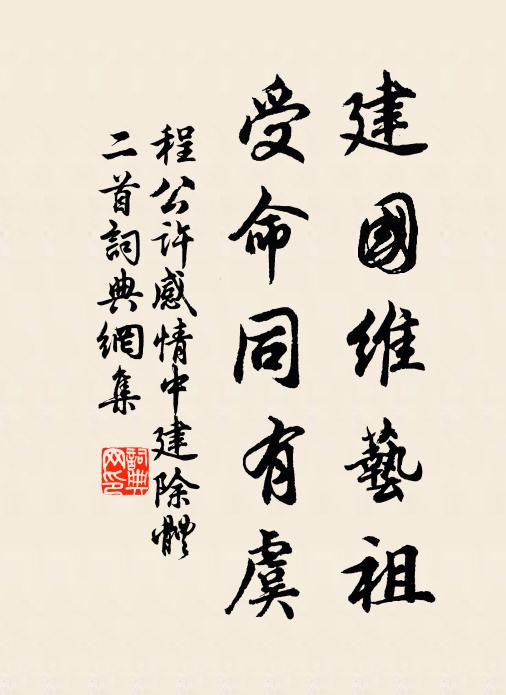 建國維藝祖
受命同有虞
程公許感情中建除體
二首詞典網集
詞典网印